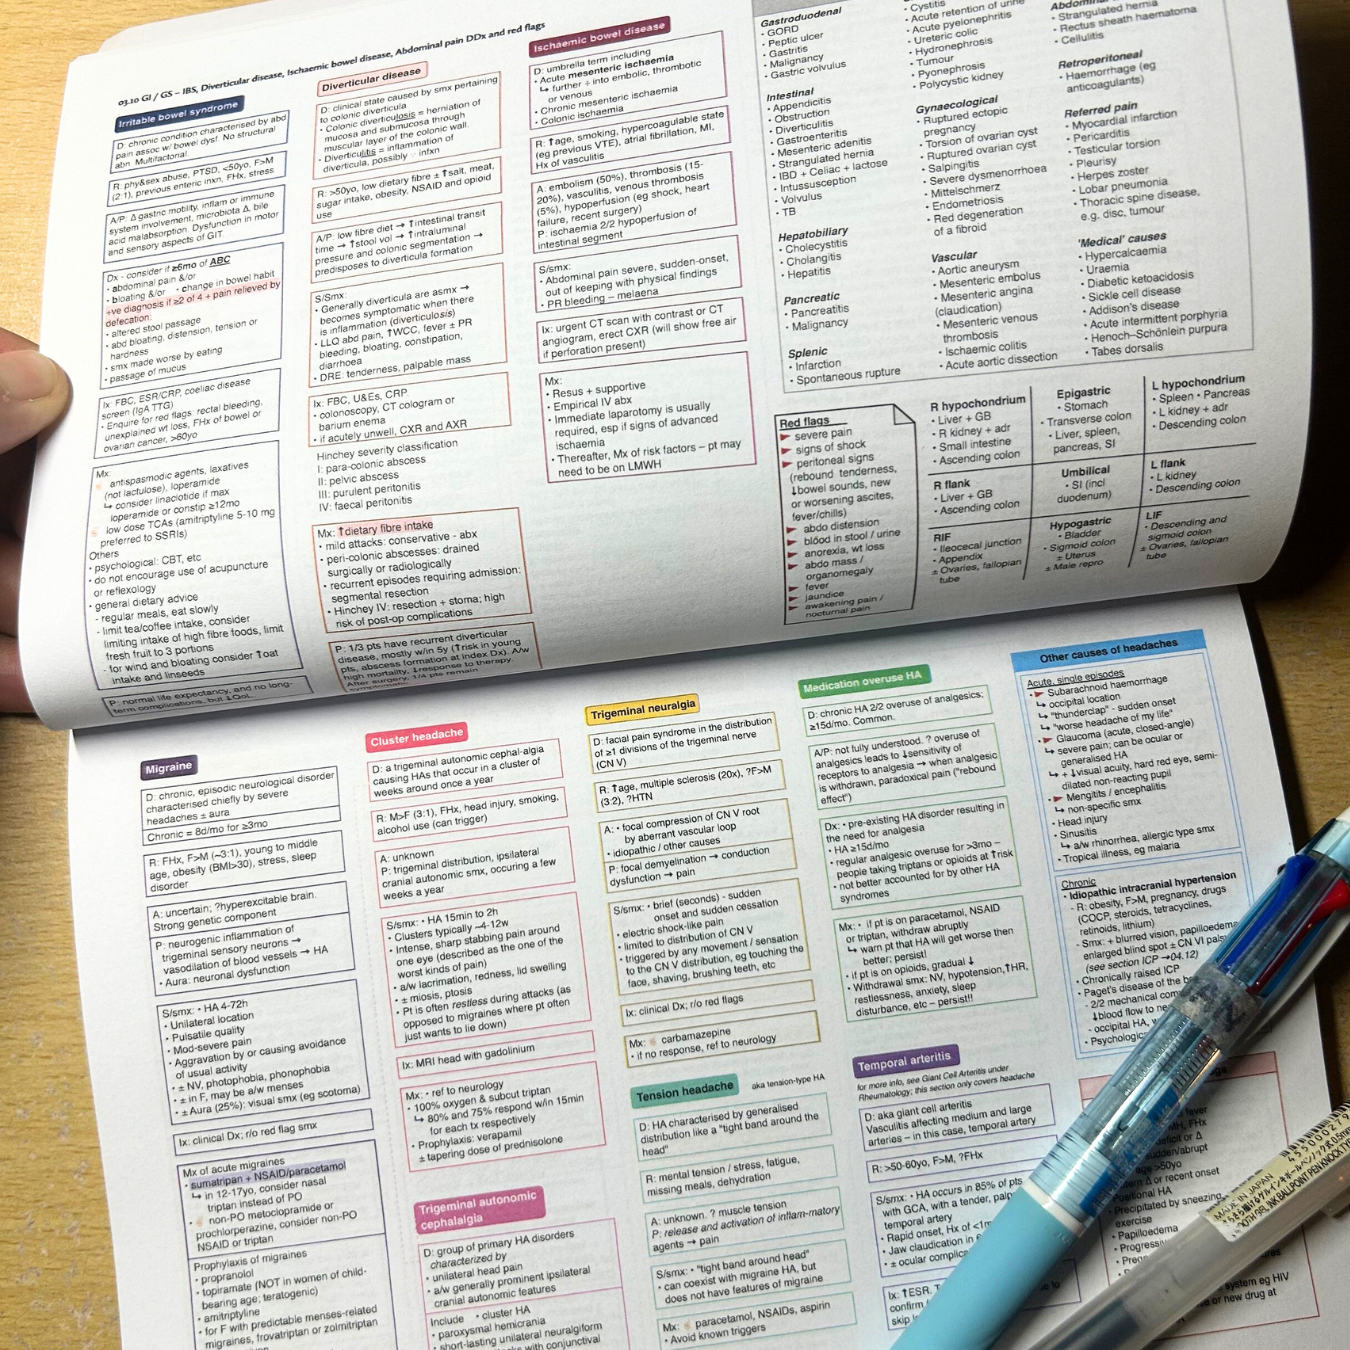 03.10 GI / GS – IBS, Diverticular disease, Ischaemic bowel disease, Abdominal pain DDx and red flags
Irritable bowel syndrome
D: chronic condition characterised by abd
pain assoc w/ bowel dysf. No structural
abn. Multifactorial.
R: phy&sex abuse, PTSD, <50yo, F>M
(2:1), previous enteric inxn, FHx, stress
A/P: Δ gastric motility, inflam or immune
system involvement, microbiota Δ, bile
acid malabsorption. Dysfunction in motor
and sensory aspects of GIT
Dx - consider if ≥6mo of ABC
• abdominal pain &/or
• bloating &/or • change in bowel habit
+ve diagnosis if ≥2 of 4 + pain relieved by
defecation:
• altered stool passage
• abd bloating, distension, tension or
hardness
• smx made worse by eating
• passage of mucus
Ix: FBC, ESR/CRP, coeliac disease
screen (IgA TTG)
• Enquire for red flags: rectal bleeding,
unexplained wt loss, FHx of bowel or
ovarian cancer, >60yo
Mx:
antispasmodic agents, laxatives
(not lactulose), loperamide
↳ consider linaclotide if max
loperamide or constip ≥12mo
low dose TCAs (amitriptyline 5-10 mg
preferred to SSRIs)
Others
• psychological: CBT, etc
• do not encourage use of acupuncture
or reflexology
• general dietary advice
- regular meals, eat slowly
- limit tea/coffee intake, consider
limiting intake of high fibre foods, limit
fresh fruit to 3 portions
- for wind and bloating consider ↑oat
intake and linseeds
P: normal life expectancy, and no long-
term complications, but ↓QoL
Diverticular disease
D: clinical state caused by smx pertaining
to colonic diverticula
• Colonic diverticulosis = herniation of
mucosa and submucosa through
muscular layer of the colonic wall.
• Diverticulitis = inflammation of
diverticula, possibly ∵ infxn
R: >50yo, low dietary fibre ± ↑salt, meat,
sugar intake, obesity, NSAID and opioid
use
A/P: low fibre diet → ↑intestinal transit
time → ↑stool vol → ↑intraluminal
pressure and colonic segmentation →
predisposes to diverticula formation
S/Smx:
• Generally diverticula are asmx →
becomes symptomatic when there
is inflammation (diverticulosis)
• LLQ abd pain, ↑WCC, fever ± PR
bleeding, bloating, constipation,
diarrhoea
• DRE: tenderness, palpable mass
Ix: FBC, U&Es, CRP
• colonoscopy, CT cologram or
barium enema
• if acutely unwell, CXR and AXR
Hinchey severity classification
I: para-colonic abscess
II: pelvic abscess
III: purulent peritonitis
IV: faecal peritonitis
Mx: ↑dietary fibre intake
• mild attacks: conservative - abx
• peri-colonic abscesses: drained
surgically or radiologically
• recurrent episodes requiring admission:
segmental resection
• Hinchey IV: resection + stoma; high
risk of post-op complications
P: 1/3 pts have recurrent diverticular
disease, mostly w/in 5y (↑risk in young
pts, abscess formation at index Dx). A/w
high mortality, ↓response to therapy.
After surgery, 1/4 pts remain
symptomatic
Ischaemic bowel disease
D: umbrella term including
• Acute mesenteric ischaemia
↳ further ÷ into embolic, thrombotic
or venous
• Chronic mesenteric ischaemia
• Colonic ischaemia
R: ↑age, smoking, hypercoagulable state
(eg previous VTE), atrial fibrillation, MI,
Hx of vasculitis
A: embolism (50%), thrombosis (15-
20%), vasculitis, venous thrombosis
(5%), hypoperfusion (eg shock, heart
failure, recent surgery)
P: ischaemia 2/2 hypoperfusion of
intestinal segment
S/smx:
• Abdominal pain severe, sudden-onset,
out of keeping with physical findings
• PR bleeding – melaena
Ix: urgent CT scan with contrast or CT
angiogram, erect CXR (will show free air
if perforation present)
Mx:
• Resus + supportive
• Empirical IV abx
• Immediate laparotomy is usually
required, esp if signs of advanced
ischaemia
• Thereafter, Mx of risk factors – pt may
need to be on LMWH
Gastroduodenal
• GORD
• Peptic ulcer
• Gastritis
• Malignancy
• Gastric volvulus
Intestinal
• Appendicitis
• Obstruction
• Diverticulitis
• Gastroenteritis
• Mesenteric adenitis
• Strangulated hernia
• IBD + Celiac + lactose
• Intussusception
• Volvulus
• TB
Hepatobiliary
• Cholecystitis
• Cholangitis
• Hepatitis
Pancreatic
• Pancreatitis
• Malignancy
Splenic
• Infarction
• Spontaneous rupture
• Cystitis
• Acute retention of urine
• Acute pyelonephritis
• Ureteric colic
• Hydronephrosis
• Tumour
• Pyonephrosis
• Polycystic kidney
Gynaecological
• Ruptured ectopic
pregnancy
• Torsion of ovarian cyst
• Ruptured ovarian cyst
• Salpingitis
• Severe dysmenorrhoea
• Mittelschmerz
• Endometriosis
• Red degeneration
of a fibroid
Vascular
• Aortic aneurysm
• Mesenteric embolus
• Mesenteric angina
(claudication)
• Mesenteric venous
thrombosis
• Ischaemic colitis
• Acute aortic dissection
• Strangulated hernia
• Rectus sheath haematoma
• Cellulitis
Retroperitoneal
• Haemorrhage (eg
anticoagulants)
Referred pain
• Myocardial infarction
• Pericarditis
• Testicular torsion
• Pleurisy
• Herpes zoster
• Lobar pneumonia
• Thoracic spine disease,
e.g. disc, tumour
'Medical' causes
• Hypercalcaemia
• Uraemia
• Diabetic ketoacidosis
• Sickle cell disease
• Addison's disease
• Acute intermittent porphyria
• Henoch–Schönlein purpura
• Tabes dorsalis
Red flags
severe pain
signs of shock
peritoneal signs
(rebound tenderness,
↓bowel sounds, new
or worsening ascites,
fever/chills)
abdo distension
blood in stool / urine
anorexia, wt loss
abdo mass /
organomegaly
fever
jaundice
awakening pain /
nocturnal pain
R hypochondrium
• Liver + GB
• R kidney + adr
• Small intestine
• Ascending colon
Epigastric
• Stomach
• Transverse colon
• Liver, spleen,
pancreas, SI
L hypochondrium
• Spleen • Pancreas
• L kidney + adr
• Descending colon
R flank
• Liver + GB
• Ascending colon
Umbilical
• SI (incl
duodenum)
L flank
• L kidney
• Descending colon
RIF
• Ileocecal junction
• Appendix
± Ovaries, fallopian
tube
Hypogastric
• Bladder
• Sigmoid colon
± Uterus
± Male repro
LIF
• Descending and
sigmoid colon
± Ovaries, fallopian
tube
Migraine
D: chronic, episodic neurological disorder
characterised chiefly by severe
headaches ± aura
Chronic = 8d/mo for ≥3mo
R: FHx, F>M (~3:1), young to middle
age, obesity (BMI>30), stress, sleep
disorder
A: uncertain; ?hyperexcitable brain.
Strong genetic component
P: neurogenic inflammation of
trigeminal sensory neurons →
vasodilation of blood vessels → HA
• Aura: neuronal dysfunction
S/smx: • HA 4-72h
• Unilateral location
• Pulsatile quality
• Mod-severe pain
• Aggravation by or causing avoidance
of usual activity
• ± NV, photophobia, phonophobia
• ± in F, may be a/w menses
• ± Aura (25%): visual smx (eg scotoma)
Ix: clinical Dx; r/o red flag smx
Mx of acute migraines
• sumatripan + NSAID/paracetamol
↳ in 12-17yo, consider nasal
triptan instead of PO
non-PO metoclopramide or
prochlorperazine, consider non-PO
NSAID or triptan
Prophylaxis of migraines
• propranolol
• topiramate (NOT in women of child-
bearing age; teratogenic)
• amitriptyline
• for F with predictable menses-related
migraines, frovatriptan or zolmitriptan
Cluster headache
D: a trigeminal autonomic cephal-algia
causing HAs that occur in a cluster of
weeks around once a year
R: M>F (3:1), FHx, head injury, smoking,
alcohol use (can trigger)
A: unknown
P: trigeminal distribution, ipsilateral
cranial autonomic smx, occuring a few
weeks a year
S/smx: • HA 15min to 2h
• Clusters typically ~4-12w
• Intense, sharp stabbing pain around
one eye (described as the one of the
worst kinds of pain)
• a/w lacrimation, redness, lid swelling
• ± miosis, ptosis
• Pt is often restless during attacks (as
opposed to migraines where pt often
just wants to lie down)
Ix: MRI head with gadolinium
Mx: • ref to neurology
• 100% oxygen & subcut triptan
↳ 80% and 75% respond w/in 15min
for each tx respectively
• Prophylaxis: verapamil
± tapering dose of prednisolone
Trigeminal autonomic
cephalalgia
D: group of primary HA disorders
characterised by
• unilateral head pain
• a/w generally prominent ipsilateral
cranial autonomic features
Include • cluster HA
• paroxysmal hemicrania
• short-lasting unilateral neuralgiform
with conjunctival
Trigeminal neuralgia
D: facial pain syndrome in the distribution
of ≥1 divisions of the trigeminal nerve
(CN V)
R: ↑age, multiple sclerosis (20x), ?F>M
(3:2), ?HTN
A: • focal compression of CN V root
by aberrant vascular loop
• idiopathic / other causes
P: focal demyelination → conduction
dysfunction → pain
S/smx: • brief (seconds) - sudden
onset and sudden cessation
• electric shock-like pain
• limited to distribution of CN V
• triggered by any movement / sensation
to the CN V distribution, eg touching the
face, shaving, brushing teeth, etc
Ix: clinical Dx; r/o red flags
Mx: carbamazepine
• if no response, ref to neurology
Tension headache
aka tension-type HA
D: HA characterised by generalised
distribution like a "tight band around the
head"
R: mental tension / stress, fatigue,
missing meals, dehydration
A: unknown. ? muscle tension
P: release and activation of inflam-matory
agents → pain
S/smx: • "tight band around head"
• can coexist with migraine HA, but
does not have features of migraine
Mx: paracetamol, NSAIDs, aspirin
• Avoid known triggers
Medication overuse HA
D: chronic HA 2/2 overuse of analgesics;
≥15d/mo. Common.
A/P: not fully understood. ? overuse of
analgesics leads to ↓sensitivity of
receptors to analgesia → when analgesic
is withdrawn, paradoxical pain ("rebound
effect")
Dx: • pre-existing HA disorder resulting in
the need for analgesia
• HA ≥15d/mo
• regular analgesic overuse for >3mo –
people taking triptans or opioids at ↑risk
• not better accounted for by other HA
syndromes
Mx: • if pt is on paracetamol, NSAID
or triptan, withdraw abruptly
↳ warn pt that HA will get worse then
better; persist!
• if pt is on opioids, gradual ↓
• Withdrawal smx: NV, hypotension, ↑HR,
restlessness, anxiety, sleep
disturbance, etc – persist!!
Temporal arteritis
for more info, see Giant Cell Arteritis under
Rheumatology; this section only covers headache
D: aka giant cell arteritis
Vasculitis affecting medium and large
arteries – in this case, temporal artery
R: >50-60yo, F>M, ?FHx
S/smx: • HA occurs in 85% of pts
with GCA, with a tender,
temporal artery
• Rapid onset, Hx of <1m
• Jaw claudication in
• ± ocular
Ix: ↑ESR.
confirm
skip
Other causes of headaches
Acute, single episodes
• Subarachnoid haemorrhage
↳ occipital location
↳ "thunderclap" - sudden onset
↳ "worse headache of my life"
• Glaucoma (acute, closed-angle)
↳ severe pain; can be ocular or
generalised HA
↳ + ↓visual acuity, hard red eye, semi-
dilated non-reacting pupil
• Mengitits / encephalitis
↳ non-specific smx
• Head injury
• Sinusitis
↳ a/w rhinorrhea, allergic type smx
• Tropical illness, eg malaria
Chronic
• Idiopathic intracranial hypertension
- R: obesity, F>M, pregnancy, drugs
(COCP, steroids, tetracyclines,
retinoids, lithium)
- Smx: + blurred vision, papilloedema
enlarged blind spot ± CN VI palsy
(see section ICP →04.12)
• Chronically raised ICP
• Paget's disease of the
- 2/2 mechanical
↓blood flow to
- occipital HA,
fever
FHx
or Δ
sudden/abrupt
>50yo
Δ or recent onset
HA
• Precipitated by sneezing,
exercise
• Papilloedema
system eg HIV
or new drug at
MADE IN JAPAN